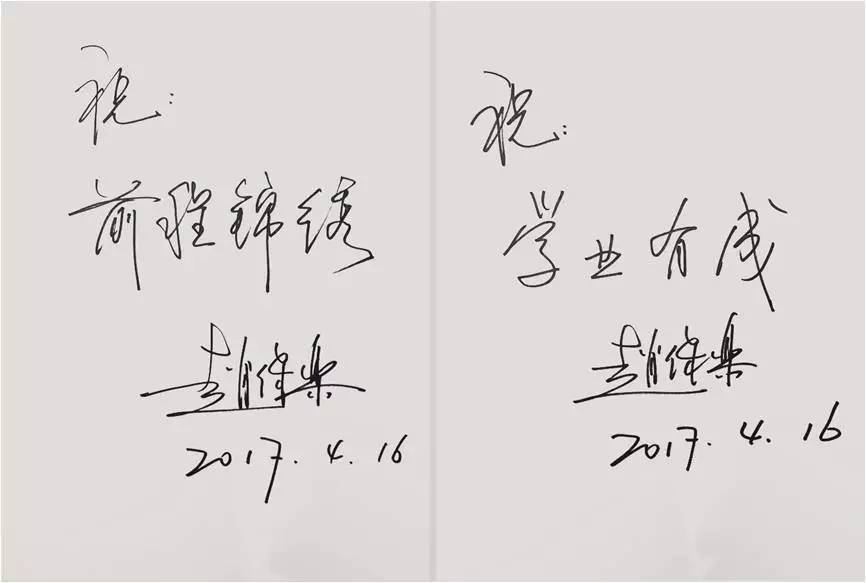 祝:
前程锦绣
赵伟业
2017.4.16
祝:
学业有成
赵伟业
2017.4.16